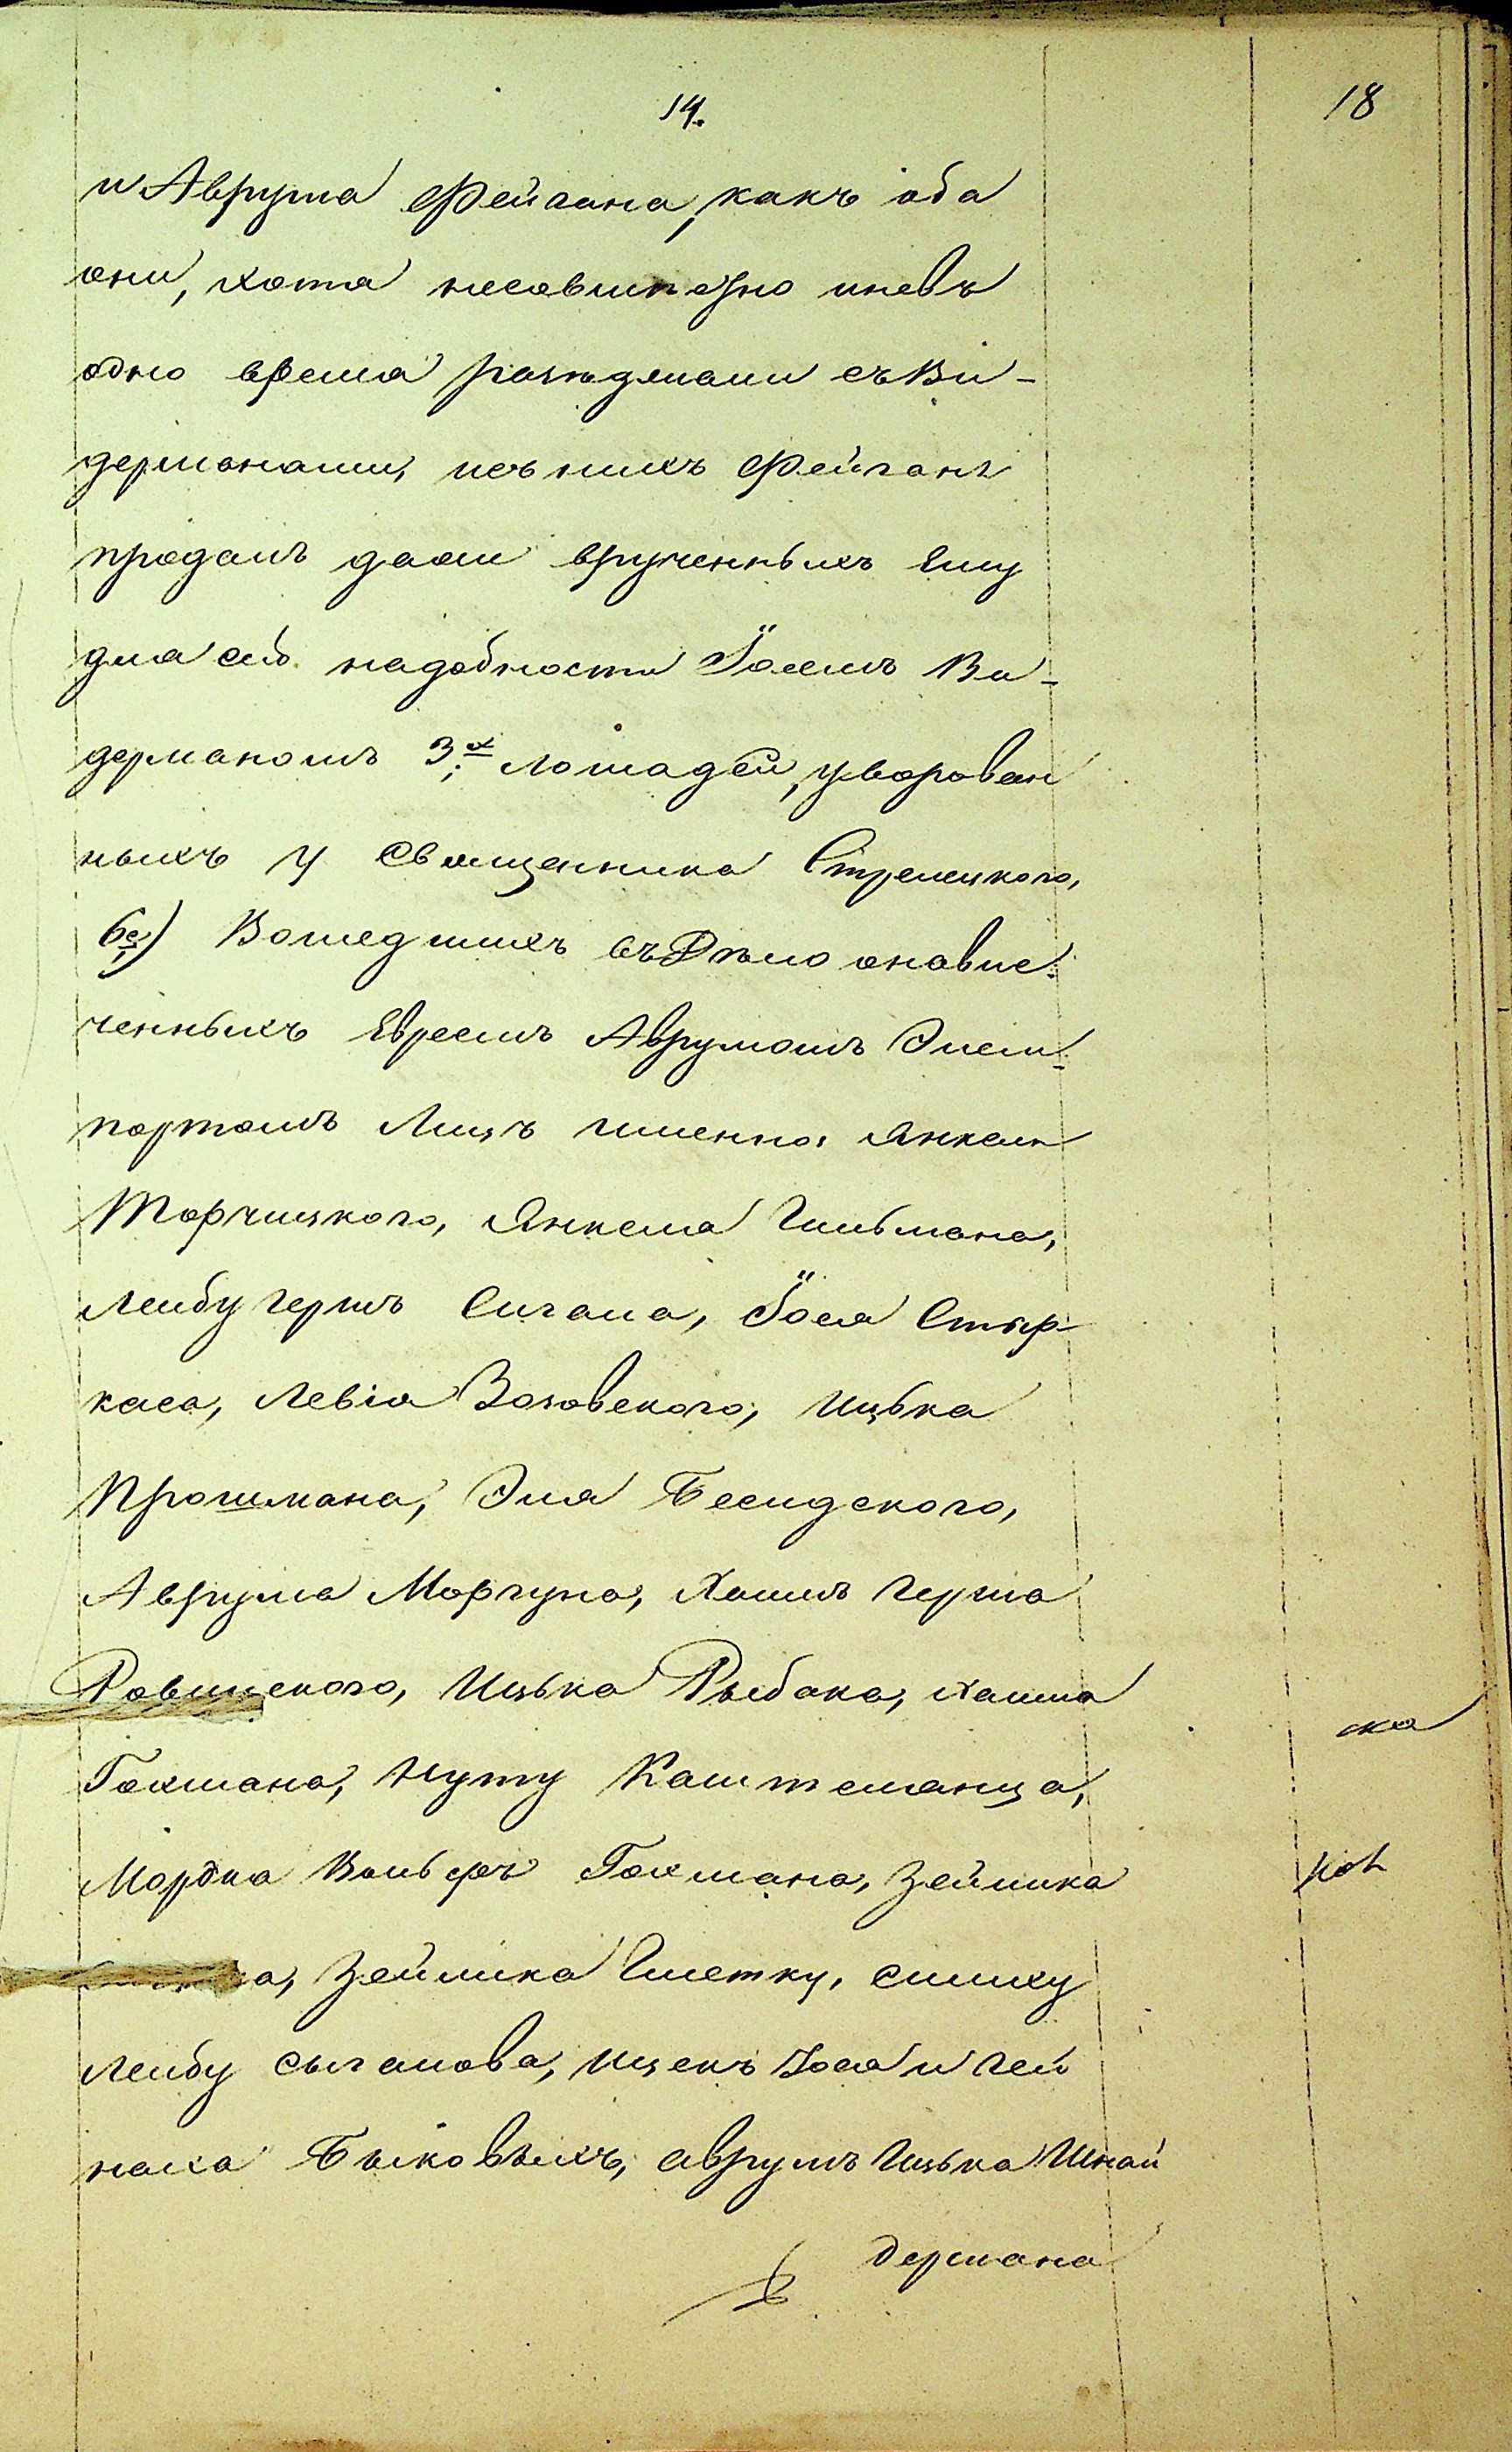 14.
18
и Аврума Фейгана, какъ оба
они, хотя несовмѣстно иневъ
одно время разъѣзжали съ Ви-
дерманами, исъ нихъ Фейганъ
продалъ двоихъ врученныхъ ему
для сей надобности Іосемъ Ви-
дерманомъ 3х лошадей, уворован
ныхъ у Священника Стрелецкого,
6е) Вошедшихъ въ Дѣло оковле-
ченныхъ Евреемъ Аврумомъ Эпель
портомъ Лицъ именно: Янкеля
Торчицкого, Янкеля Гильмана,
Лейбу Гершъ Сигала, Іося Стыр-
каса, Левія Возовского, Ицька
Прогимана, Эля Бесидского,
Аврума Моргуна, Хаимъ Герша
Ровинского, Ицька Рыбака, Хаима
ка
Гохмана, Нуту Каштелянца,
Мордка Вольфъ Гохмана, Зейлика
а, Зейлика Слетку, Симху
Лейбу Сыгалова, Ицекъ Іося и Гей
наха Быковыхъ, Аврумъ Ицька Шнай
дермана